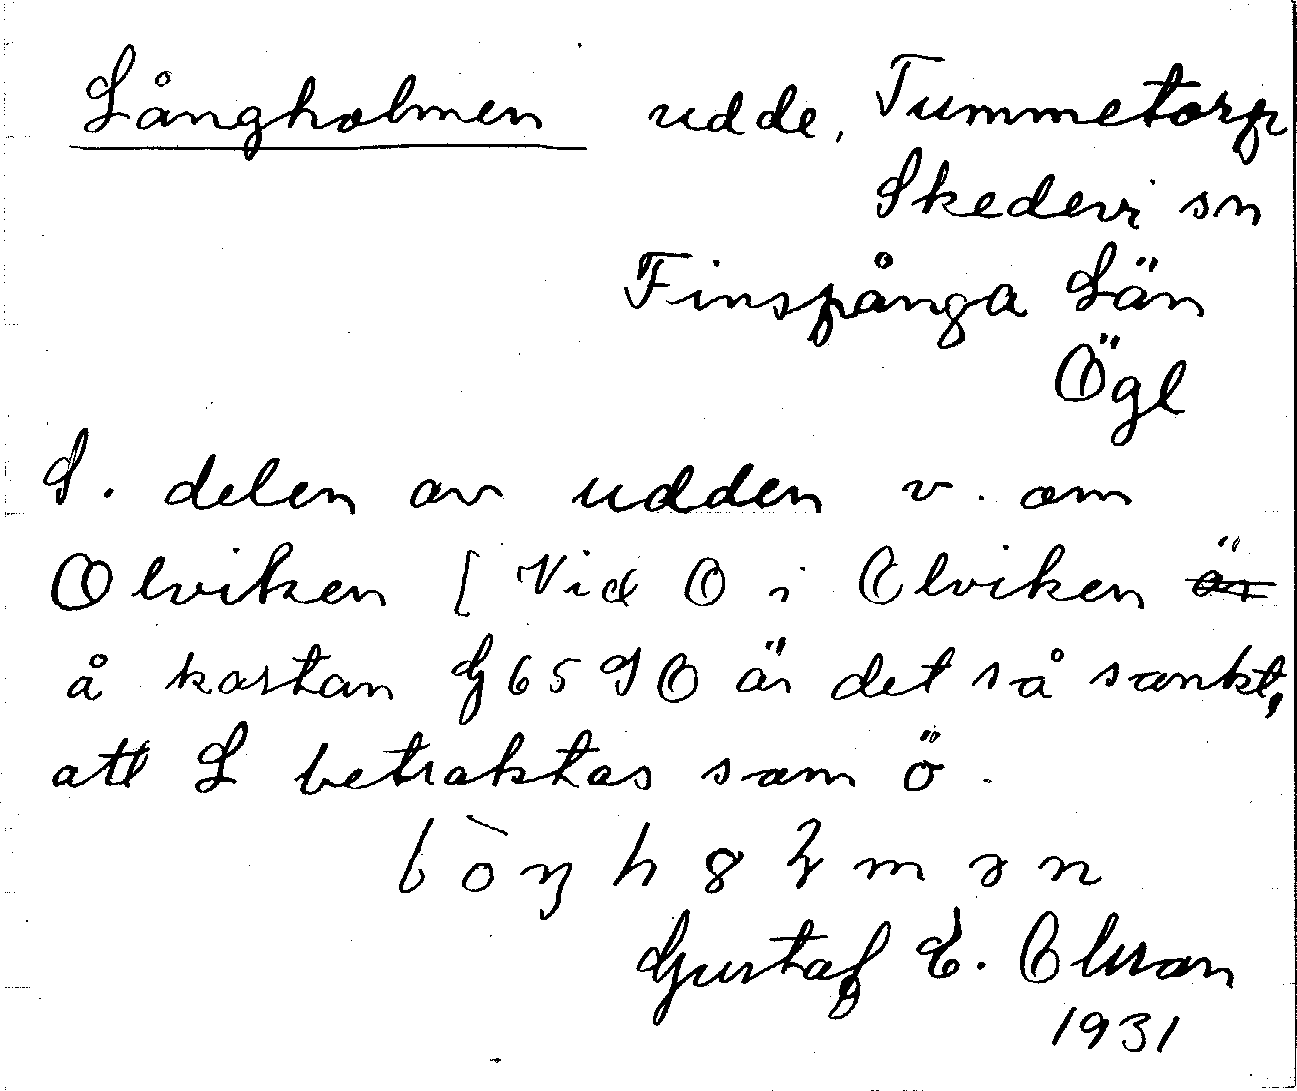 Långholmen udde, Tummetorp
Skedevi sn
Finspånga Län
Ögl
S. delen av udden v. om
Olviken [ Vid O i Olviken är
å kartan G 65 90 är det så sankt,
att L betraktas som ö.
Gustaf E. Olsson
1931